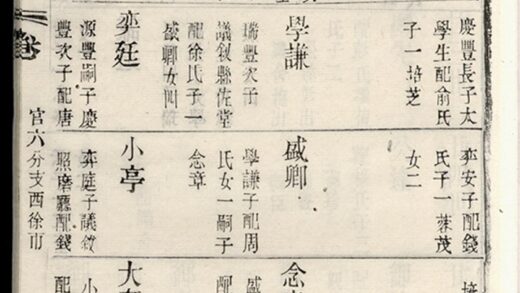 慶豐長子太
學生配俞氏
子一培芝
學謙
瑞豐次子
議敘縣佐堂
配徐氏子一
盛卿女
奕廷
源豐嗣子慶
豐次子配唐
奕安子配錢
氏子一茂
女二
盛卿
學謙子配周
氏女一嗣子
念章
小亭
奕庭子議敘
照磨廳配錢
培
念
盛
配
大
小
配
卷
官六分支西徐市